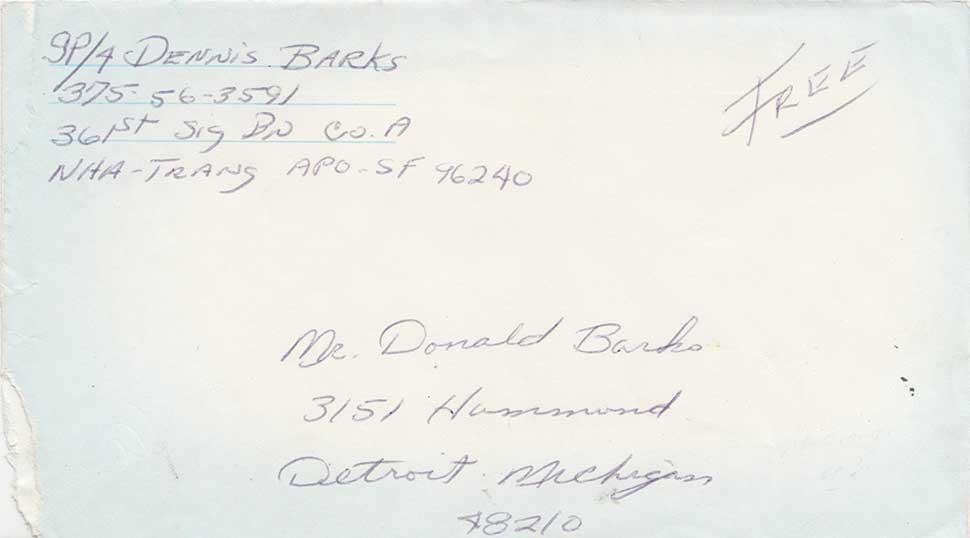 SP/4 DENNIS BARKS
FREE
375-56-3591
361st Sig BN Co. A
NHA-TRANG APO-SF 96240
Mr. Donald Barks
3151 Hammond
Detroit Michigan
48210